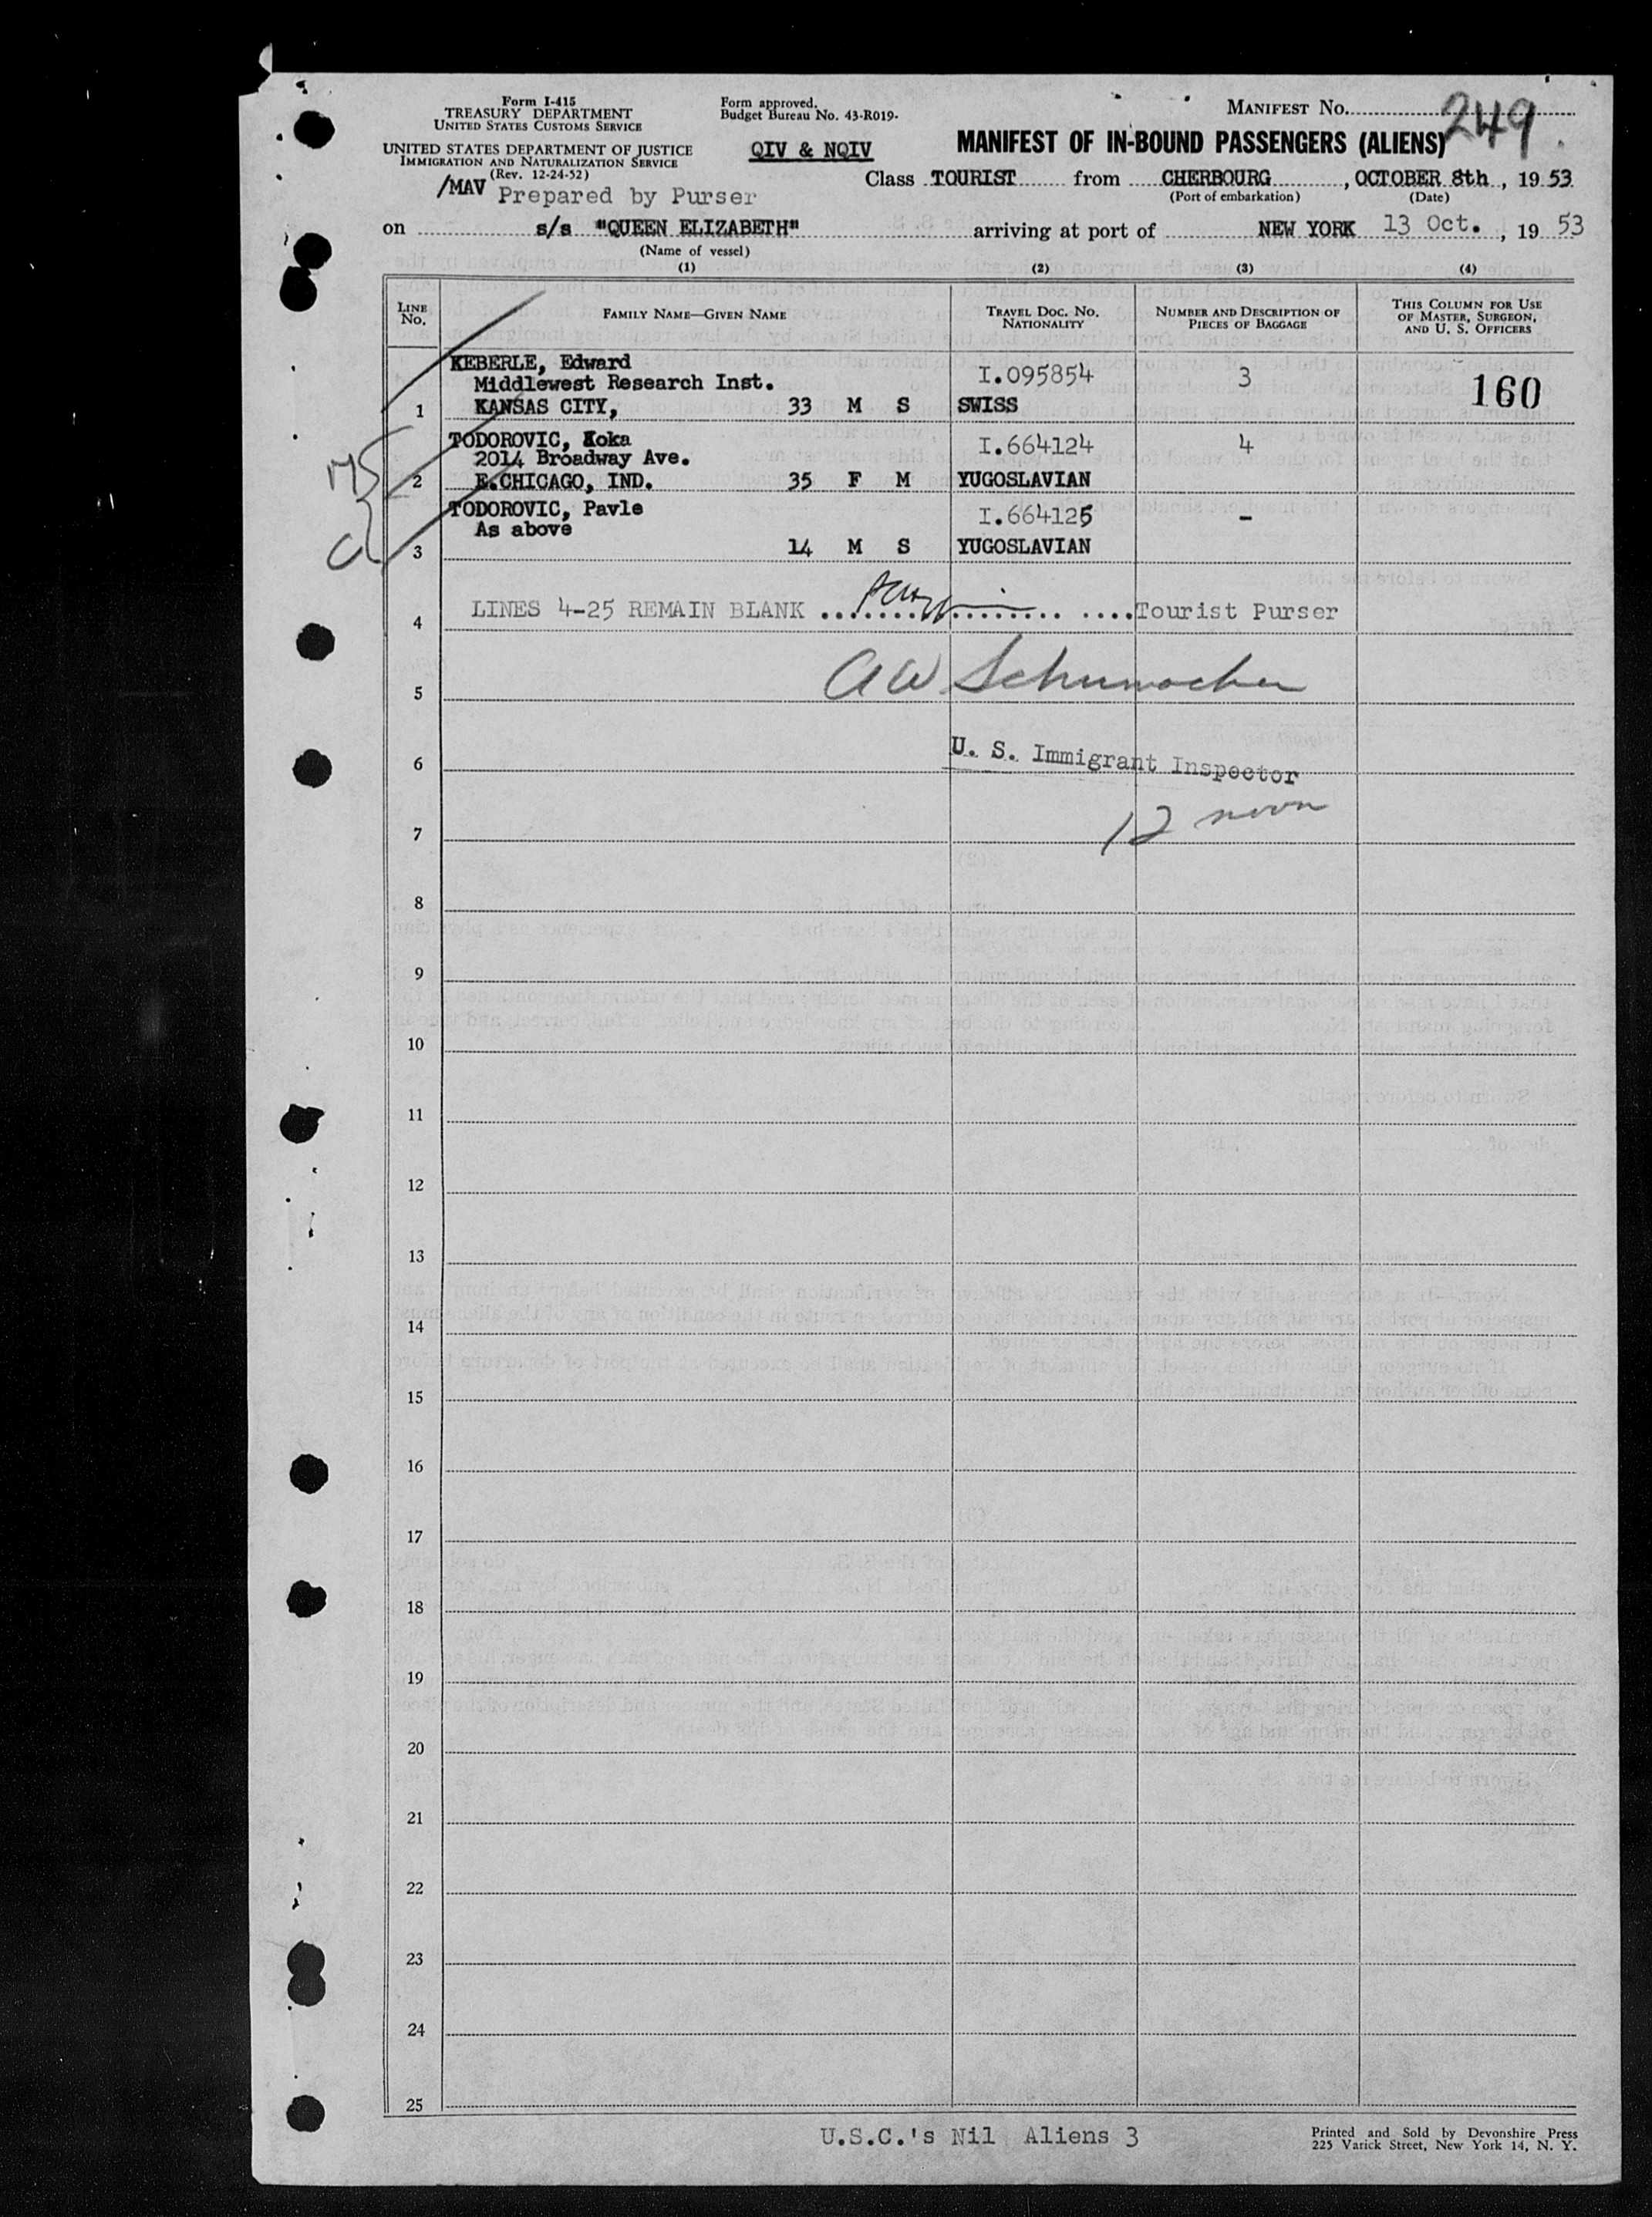 Form I-415
TREASURY DEPARTMENT
UNITED STATES CUSTOMS SERVICE
UNITED STATES DEPARTMENT OF JUSTICE
IMMIGRATION AND NATURALIZATION SERVICE
(Rev. 12-24-52)
/MAV Prepared by Purser
Form approved.
Budget Bureau No. 43-R019.
QIV & NQIV
MANIFEST NO. 249
MANIFEST OF IN-BOUND PASSENGERS (ALIENS)
Class TOURIST from CHERBOURG, OCTOBER 8th, 1953
(Port of embarkation) (Date)
on s/s "QUEEN ELIZABETH" arriving at port of NEW YORK 13 Oct., 19 53
(Name of vessel)
(1) (2) (3) (4)
LINE NO. FAMILY NAME—GIVEN NAME TRAVEL DOC. NO. NATIONALITY NUMBER AND DESCRIPTION OF PIECES OF BAGGAGE THIS COLUMN FOR USE OF MASTER, SURGEON, AND U. S. OFFICERS
KEBERLE, Edward I.095854 3 160
Middlewest Research Inst.
1 KANSAS CITY, 33 M S SWISS
TODOROVIC, Koka I.664124 4
2014 Broadway Ave.
2 E.CHICAGO, IND. 35 F M YUGOSLAVIAN
TODOROVIC, Pavle I.664125 -
As above
3 14 M S YUGOSLAVIAN
4 LINES 4-25 REMAIN BLANK .................. Tourist Purser
5 AW Schumacher
6 U. S. Immigrant Inspector
7 12 noon
8
9
10
11
12
13
14
15
16
17
18
19
20
21
22
23
24
25
U.S.C.'s Nil Aliens 3
Printed and Sold by Devonshire Press
225 Varick Street, New York 14, N. Y.